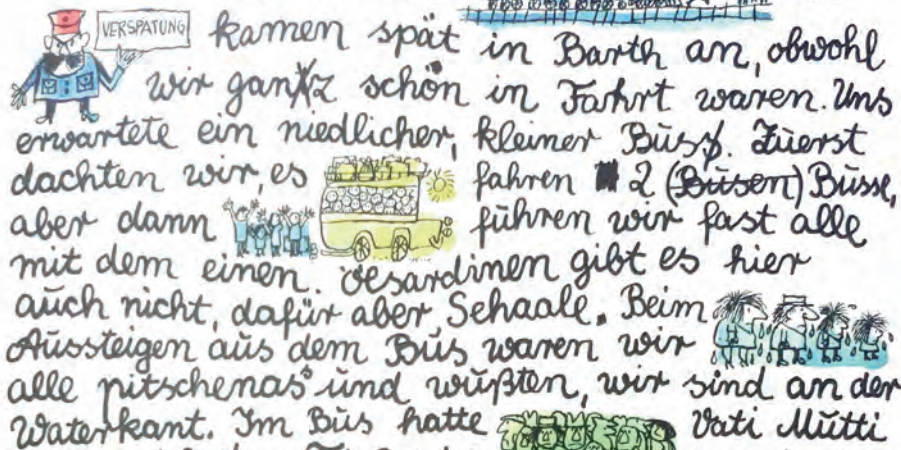 VERSPÄTUNG
kamen spät in Barth an, obwohl
wir ganz schön in Fahrt waren. Uns
erwartete ein niedlicher, kleiner Bus. Zuerst
dachten wir, es fahren 2 (Busen) Busse,
aber dann fuhren wir fast alle
mit dem einen. Ölsardinen gibt es hier
auch nicht, dafür aber Sehaale. Beim
Aussteigen aus dem Bus waren wir
alle pitschenas und wußten, wir sind an der
Waterkant. Im Bus hatte Vati Mutti